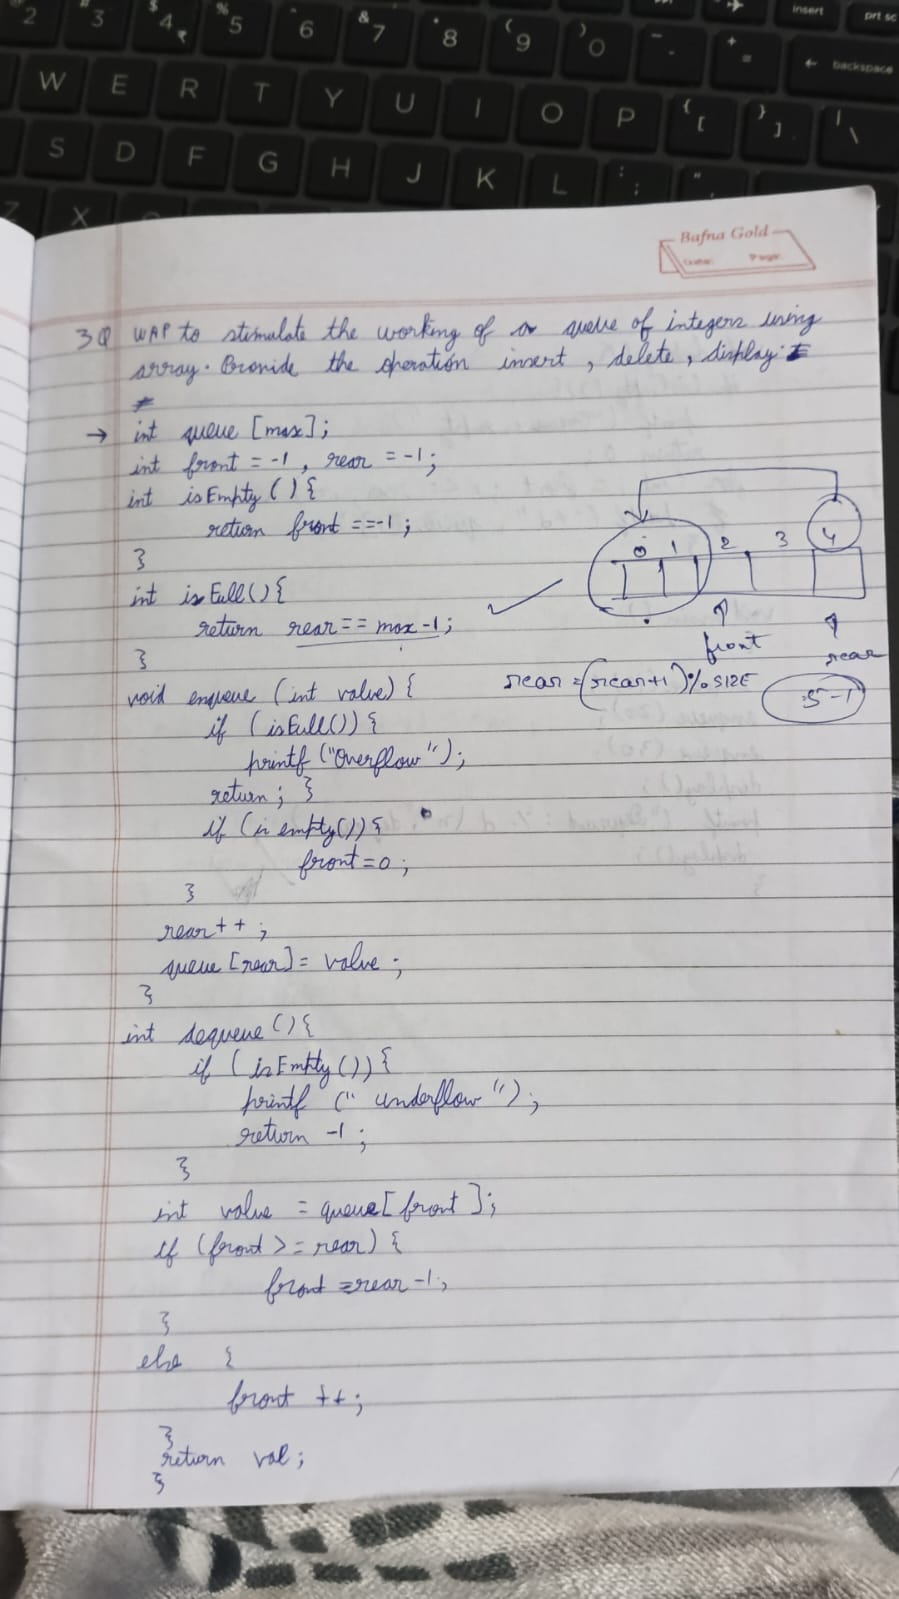 insert
prt sc
2
3
$ 4 ₹
% 5
^ 6
& 7
* 8
( 9
) 0
- -
+ =
← backspace
W E R T Y U I O P { [ } ] | \
S D F G H J K L : ; "
Z X
Bafna Gold
Date: Page:
3Q WAP to stimulate the working of a queue of integers using
array. Provide the operation insert, delete, display.
→ int queue [max];
int front = -1, rear = -1;
int isEmpty () {
return front ==-1;
}
int isFull() {
return rear == max-1;
}
0 1 2 3 4
front
rear
rear = (rear+1) % SIZE
5-1
void enqueue (int value) {
if (isFull()) {
printf ("Overflow");
return; }
if (is empty()) {
front = 0;
}
rear++;
queue [rear] = value;
}
int dequeue () {
if (isEmpty ()) {
printf (" underflow ");
return -1;
}
int value = queue[ front ];
if (front >= rear) {
front = rear -1;
}
else {
front ++;
}
return val;
}